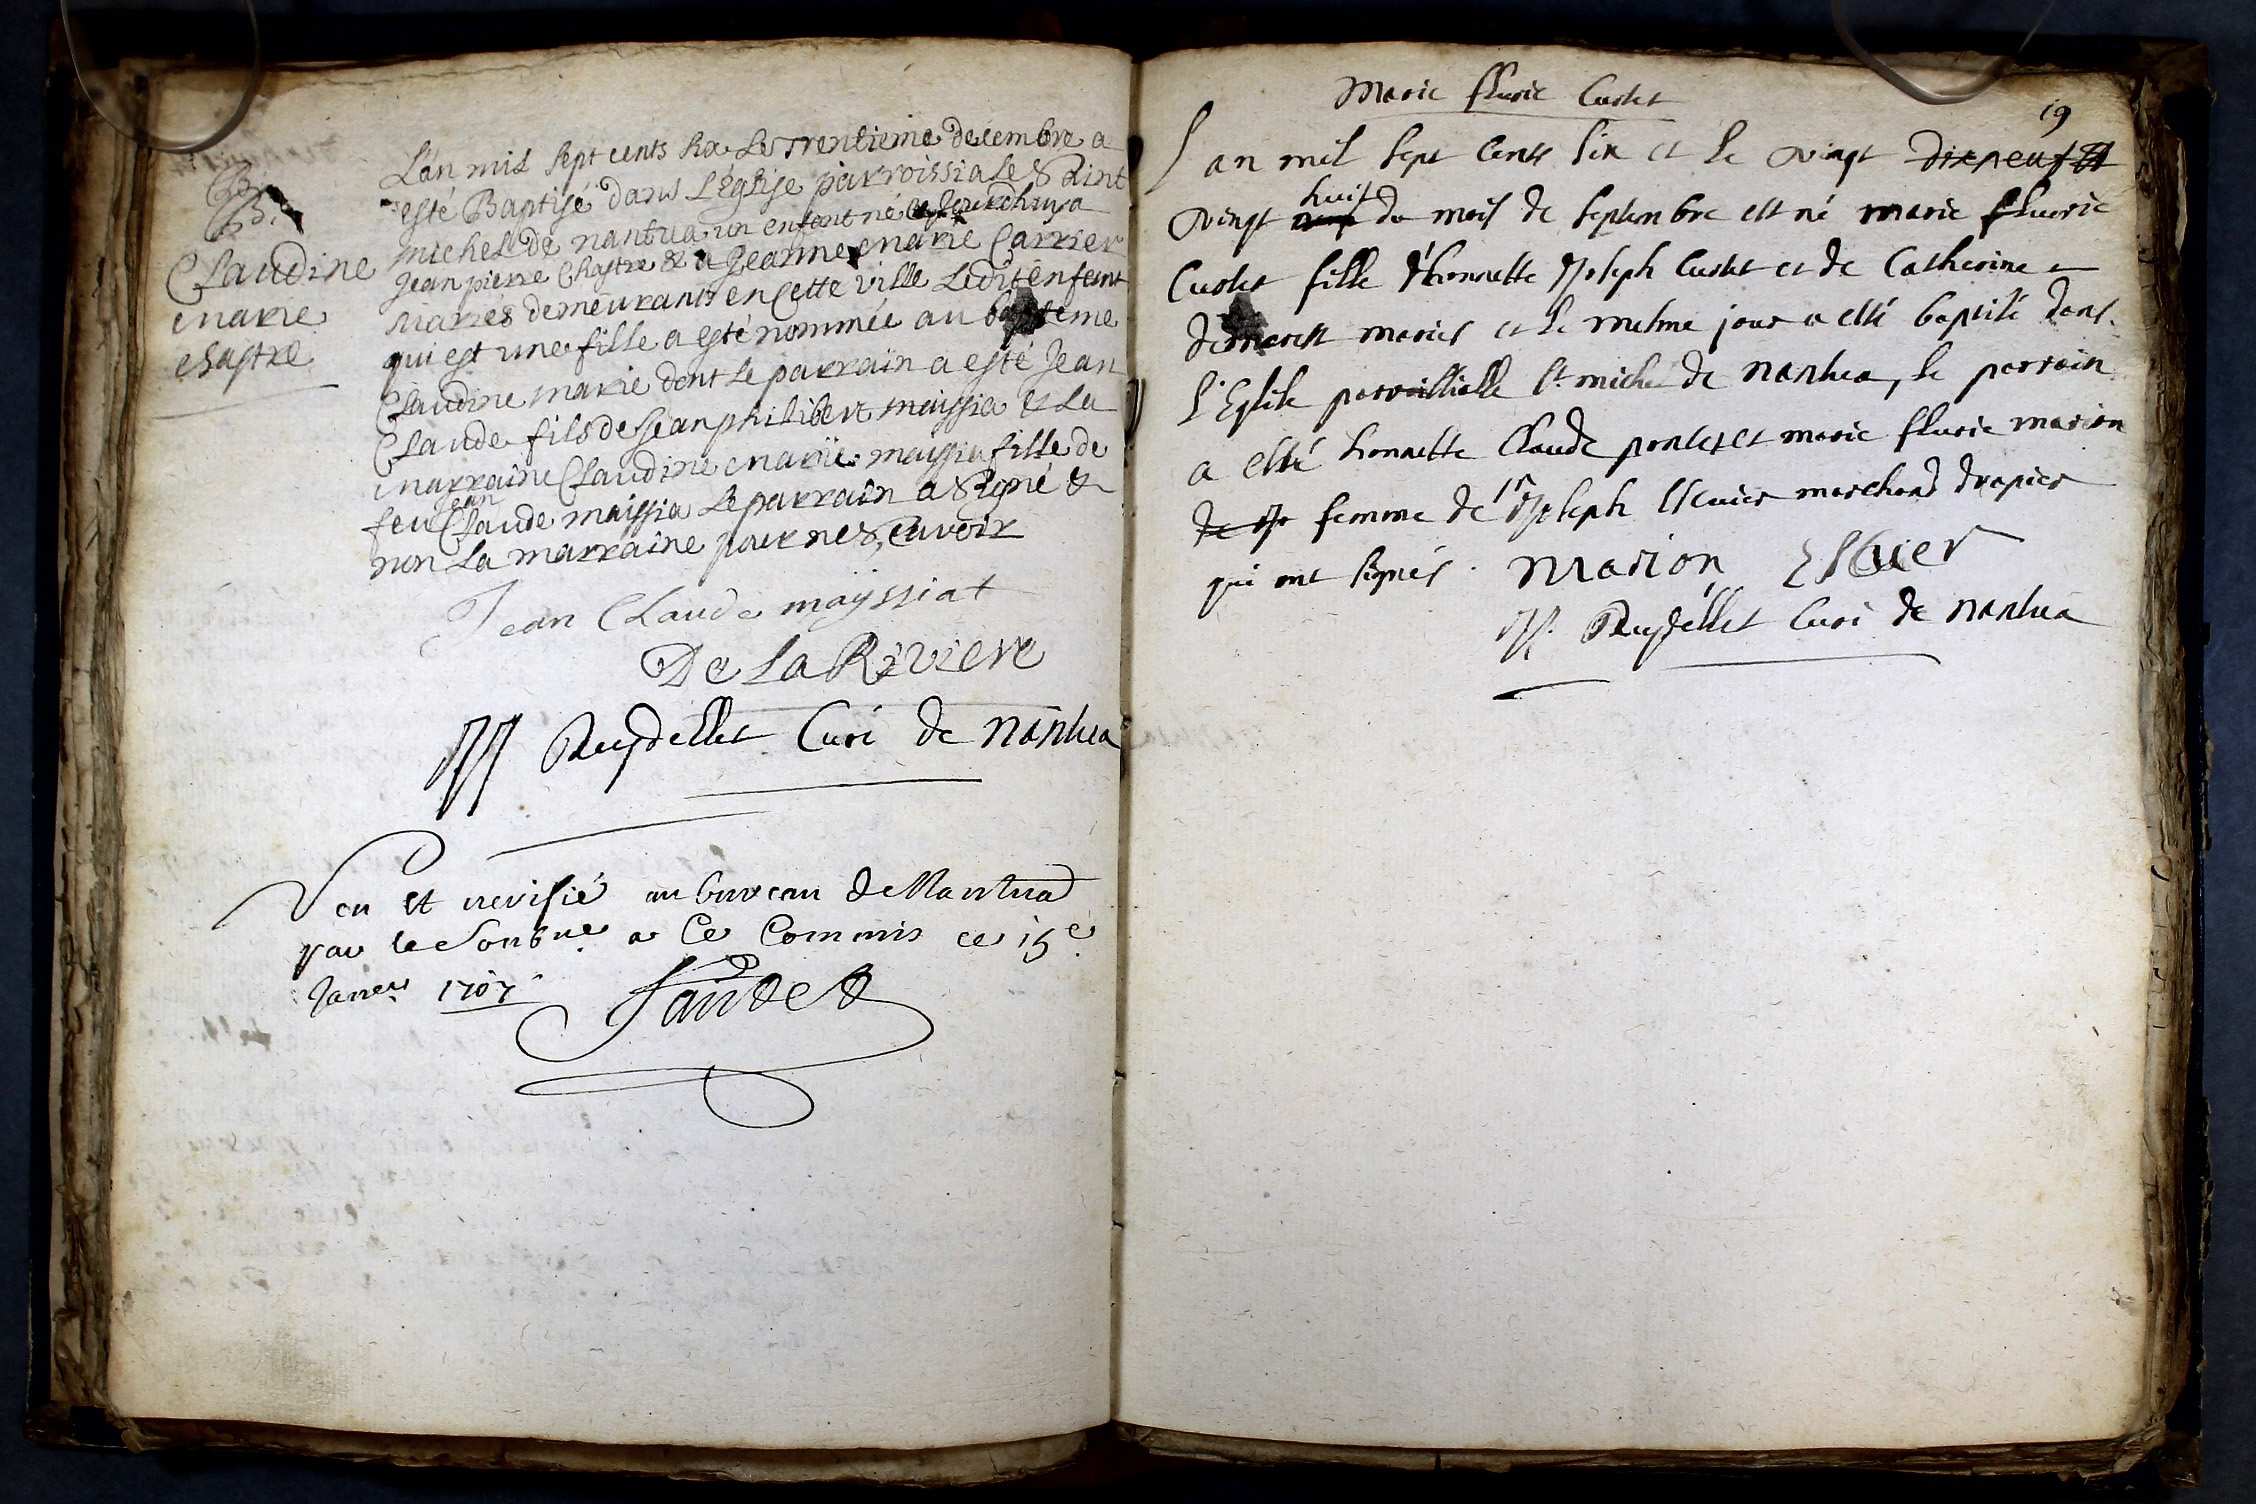 B.
Claudine
marie
chastre
L'an mil sept cents six Le Trentieme decembre a
esté Baptisé dans L'Eglise parroissiale Saint
michel de nantua un enfant né
Jean pierre Chastre & a Jeanne marie Carrier
mariés demeurants en Cette ville Ledit enfant
qui est une fille a esté nommée au bapteme
Claudine marie dont Le parrain a esté Jean
Claude fils de Jean philibert maissia & La
marraine Claudine marie maissia fille de
feu Jean Claude maissia Le parrain a signé &
non La marraine pour ne sçavoir
Jean Claude mayssiat
De La Riviere
M Reydellet Curé de Nantua
Veu et verifié au bureau de Nantua
par le Soub.ne a Ce Commis ce 15e
Janer 1707
19
Marie fleurie Curlet
L'an mil sept Cents six et le vingt dixneuf et
vingt huit du mois de septembre est né marie fleurie
Curlet fille d'honneste Joseph Curlet et de Catherine
mariés et le mesme jour a esté baptisé dans
l'Eglise parroissielle St michel de Nantua, le parrain
a esté honneste Claude ponlet et marie fleurie marion
de Jo femme de Sr Joseph Escuier marchand drapier
qui ont signés. Marion Escuier
M. Reydellet Curé de Nantua